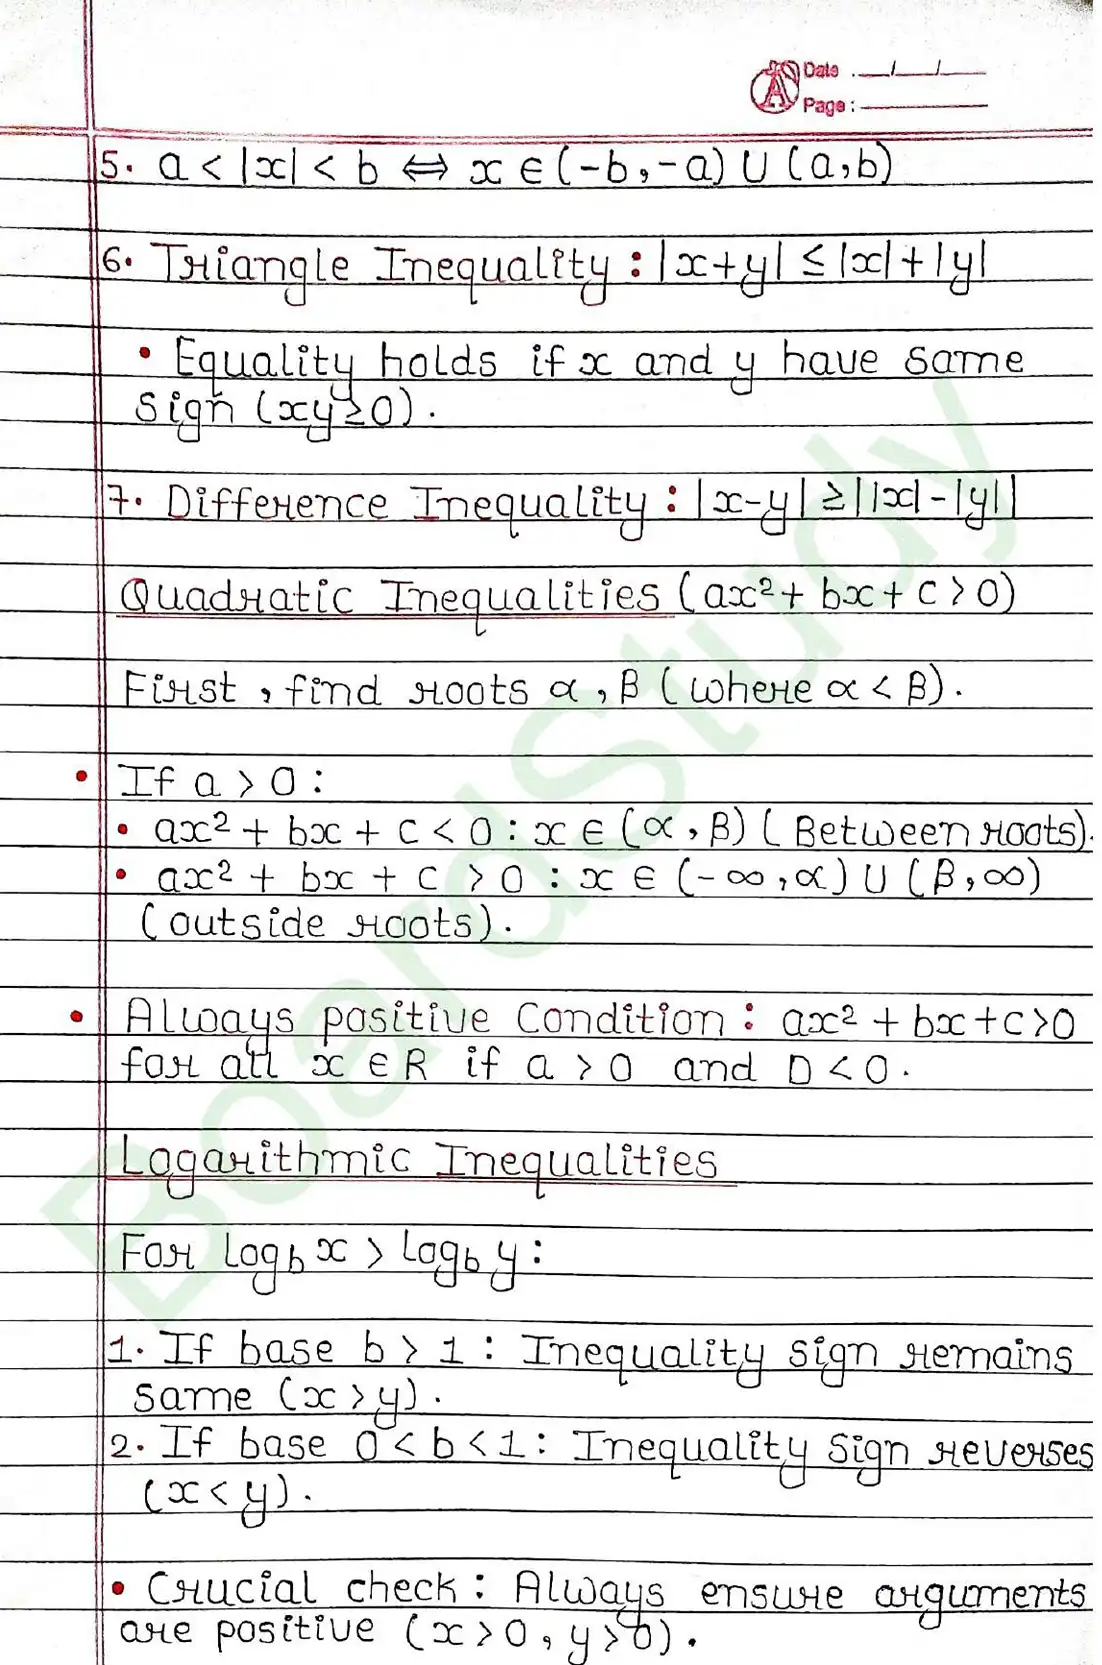 Date : __/__/__
Page : ______
5. a < |x| < b ⇔ x ∈ (-b, -a) ∪ (a, b)
6. Triangle Inequality : |x+y| ≤ |x| + |y|
• Equality holds if x and y have same
sign (xy ≥ 0).
7. Difference Inequality : |x-y| ≥ ||x| - |y||
Quadratic Inequalities (ax² + bx + c > 0)
First, find roots α, β (where α < β).
• If a > 0 :
• ax² + bx + c < 0 : x ∈ (α, β) (Between roots).
• ax² + bx + c > 0 : x ∈ (-∞, α) ∪ (β, ∞)
(outside roots).
• Always positive Condition : ax² + bx + c > 0
for all x ∈ R if a > 0 and D < 0.
Logarithmic Inequalities
For log_b x > log_b y :
1. If base b > 1 : Inequality sign remains
same (x > y).
2. If base 0 < b < 1 : Inequality Sign reverses
(x < y).
• Crucial check : Always ensure arguments
are positive (x > 0, y > 0).
BoardStudy